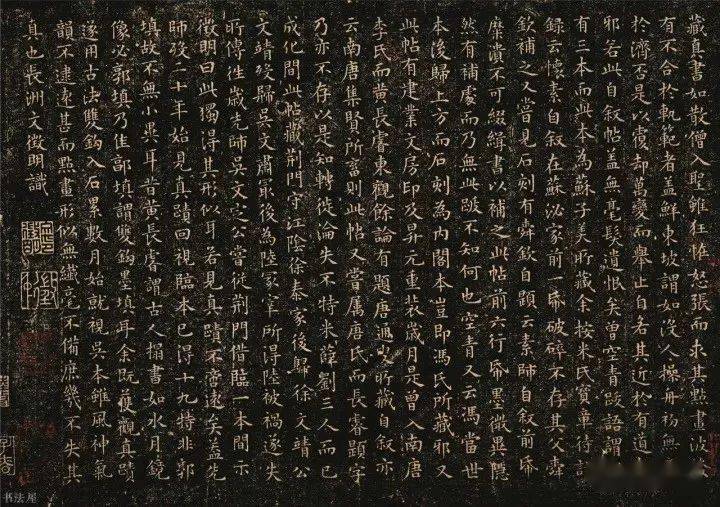 藏真書如散僧入聖雖狂怪怒張而求其點畫波
有不合於軌範者蓋鮮東坡謂如没人操舟初無
於濟否是以覆却萬變而舉止自若其近於有道
邪若此自叙帖蓋無毫髮遺恨矣曾空青跋語謂
有三本而此本為蘇子美所藏余按米氏寶章待
錄云懷素自叙在蘇泌家前一帋破碎不存其父舜
欽補之又嘗見石刻有舜欽自題云素師自叙前帋
糜潰不可綴緝書以補之此帖前六行帋墨微異隱
然有補處而乃無此跋不知何也空青又云馮當世
本後歸上方而石刻為内閣本豈即馮氏所藏邪又
此帖有建業文房印及昇元重裝歲月是曾入南唐
李氏而黄長睿東觀餘論有題唐通叟所藏自叙亦
云南唐集賢所畜則此帖又嘗属唐氏而長睿題字
乃亦不存以是知轉徙淪失不特米薛劉三人而已
成化間此帖藏荆門守江陰徐泰家後歸徐文靖公
文靖歿歸吴文肅最後為陸冢宰所得陸被禍遂失
所傳往歲先師吴文定公嘗從荆門借臨一本間示
徵明曰此獨得其形似耳若見真蹟不啻遠矣蓋先
師歿二十年始見真蹟回視臨本已得十九特非郭
填故不無小異耳昔黄長睿謂古人搨書如水月鏡
像必郭填乃佳郭填謂雙鈎墨填耳余既獲觀真蹟
遂用古法雙鈎入石累數月始就視吴本雖風神氣
韻不逮遠甚而點畫形似無纖毫不備庶幾不失其
真也長洲文徵明識
书法屋